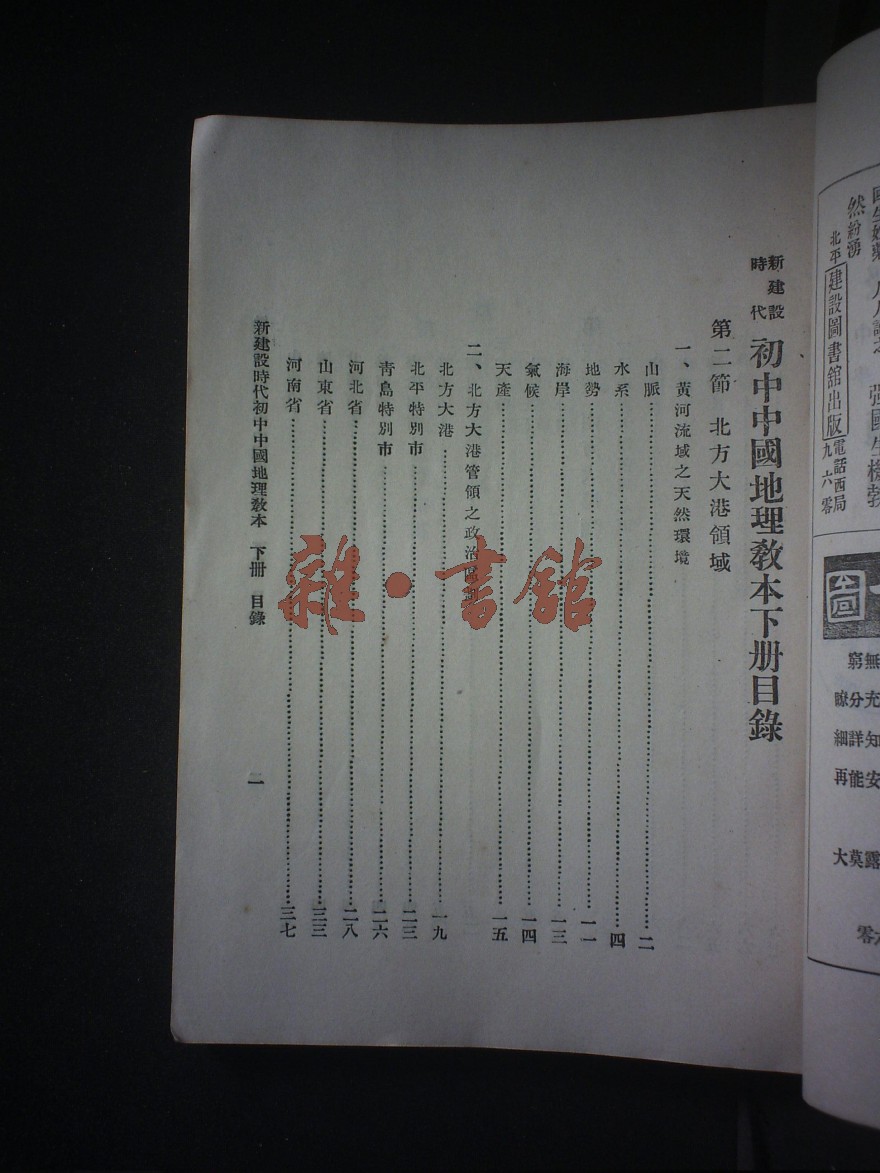 新建設時代
初中中國地理教本下册目錄
第二節 北方大港領域
一、黃河流域之天然環境
山脈……二
水系……四
地勢……一一
海岸……一三
氣候……一四
天產……一五
二、北方大港管領之政治區
北方大港……一九
北平特別市……二三
青島特別市……二六
河北省……二八
山東省……三三
河南省……三七
新建設時代初中中國地理教本 下册 目錄
一
雜·書館
然紛湧
北平建設圖書館出版
電話西局
九六零
無窮
充分瞭
知詳細
安能再
露莫大